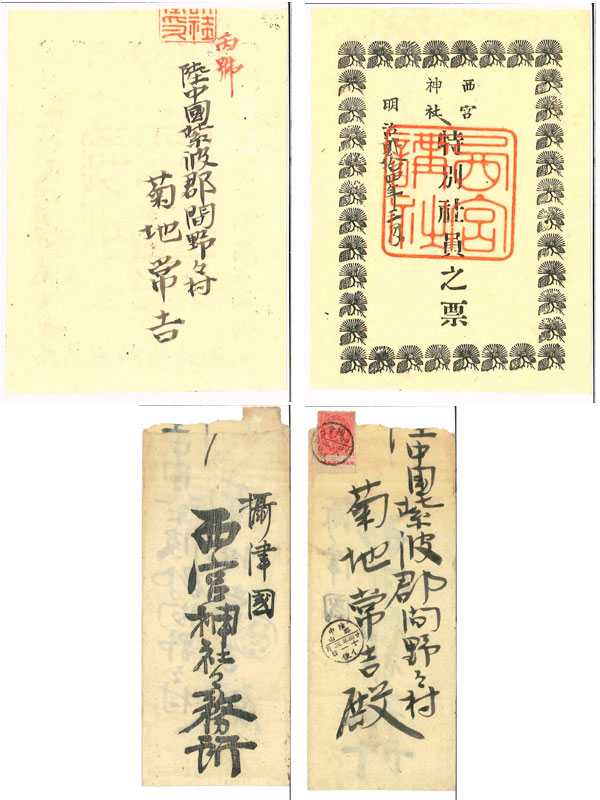 丙號
陸中國紫波郡間野々村
菊地常吉
西宮
神社
特別社員之票
明治貳拾四年十二月
西宮
講社
攝津國
西宮神社々務所
陸中國紫波郡間野々村
菊地常吉殿